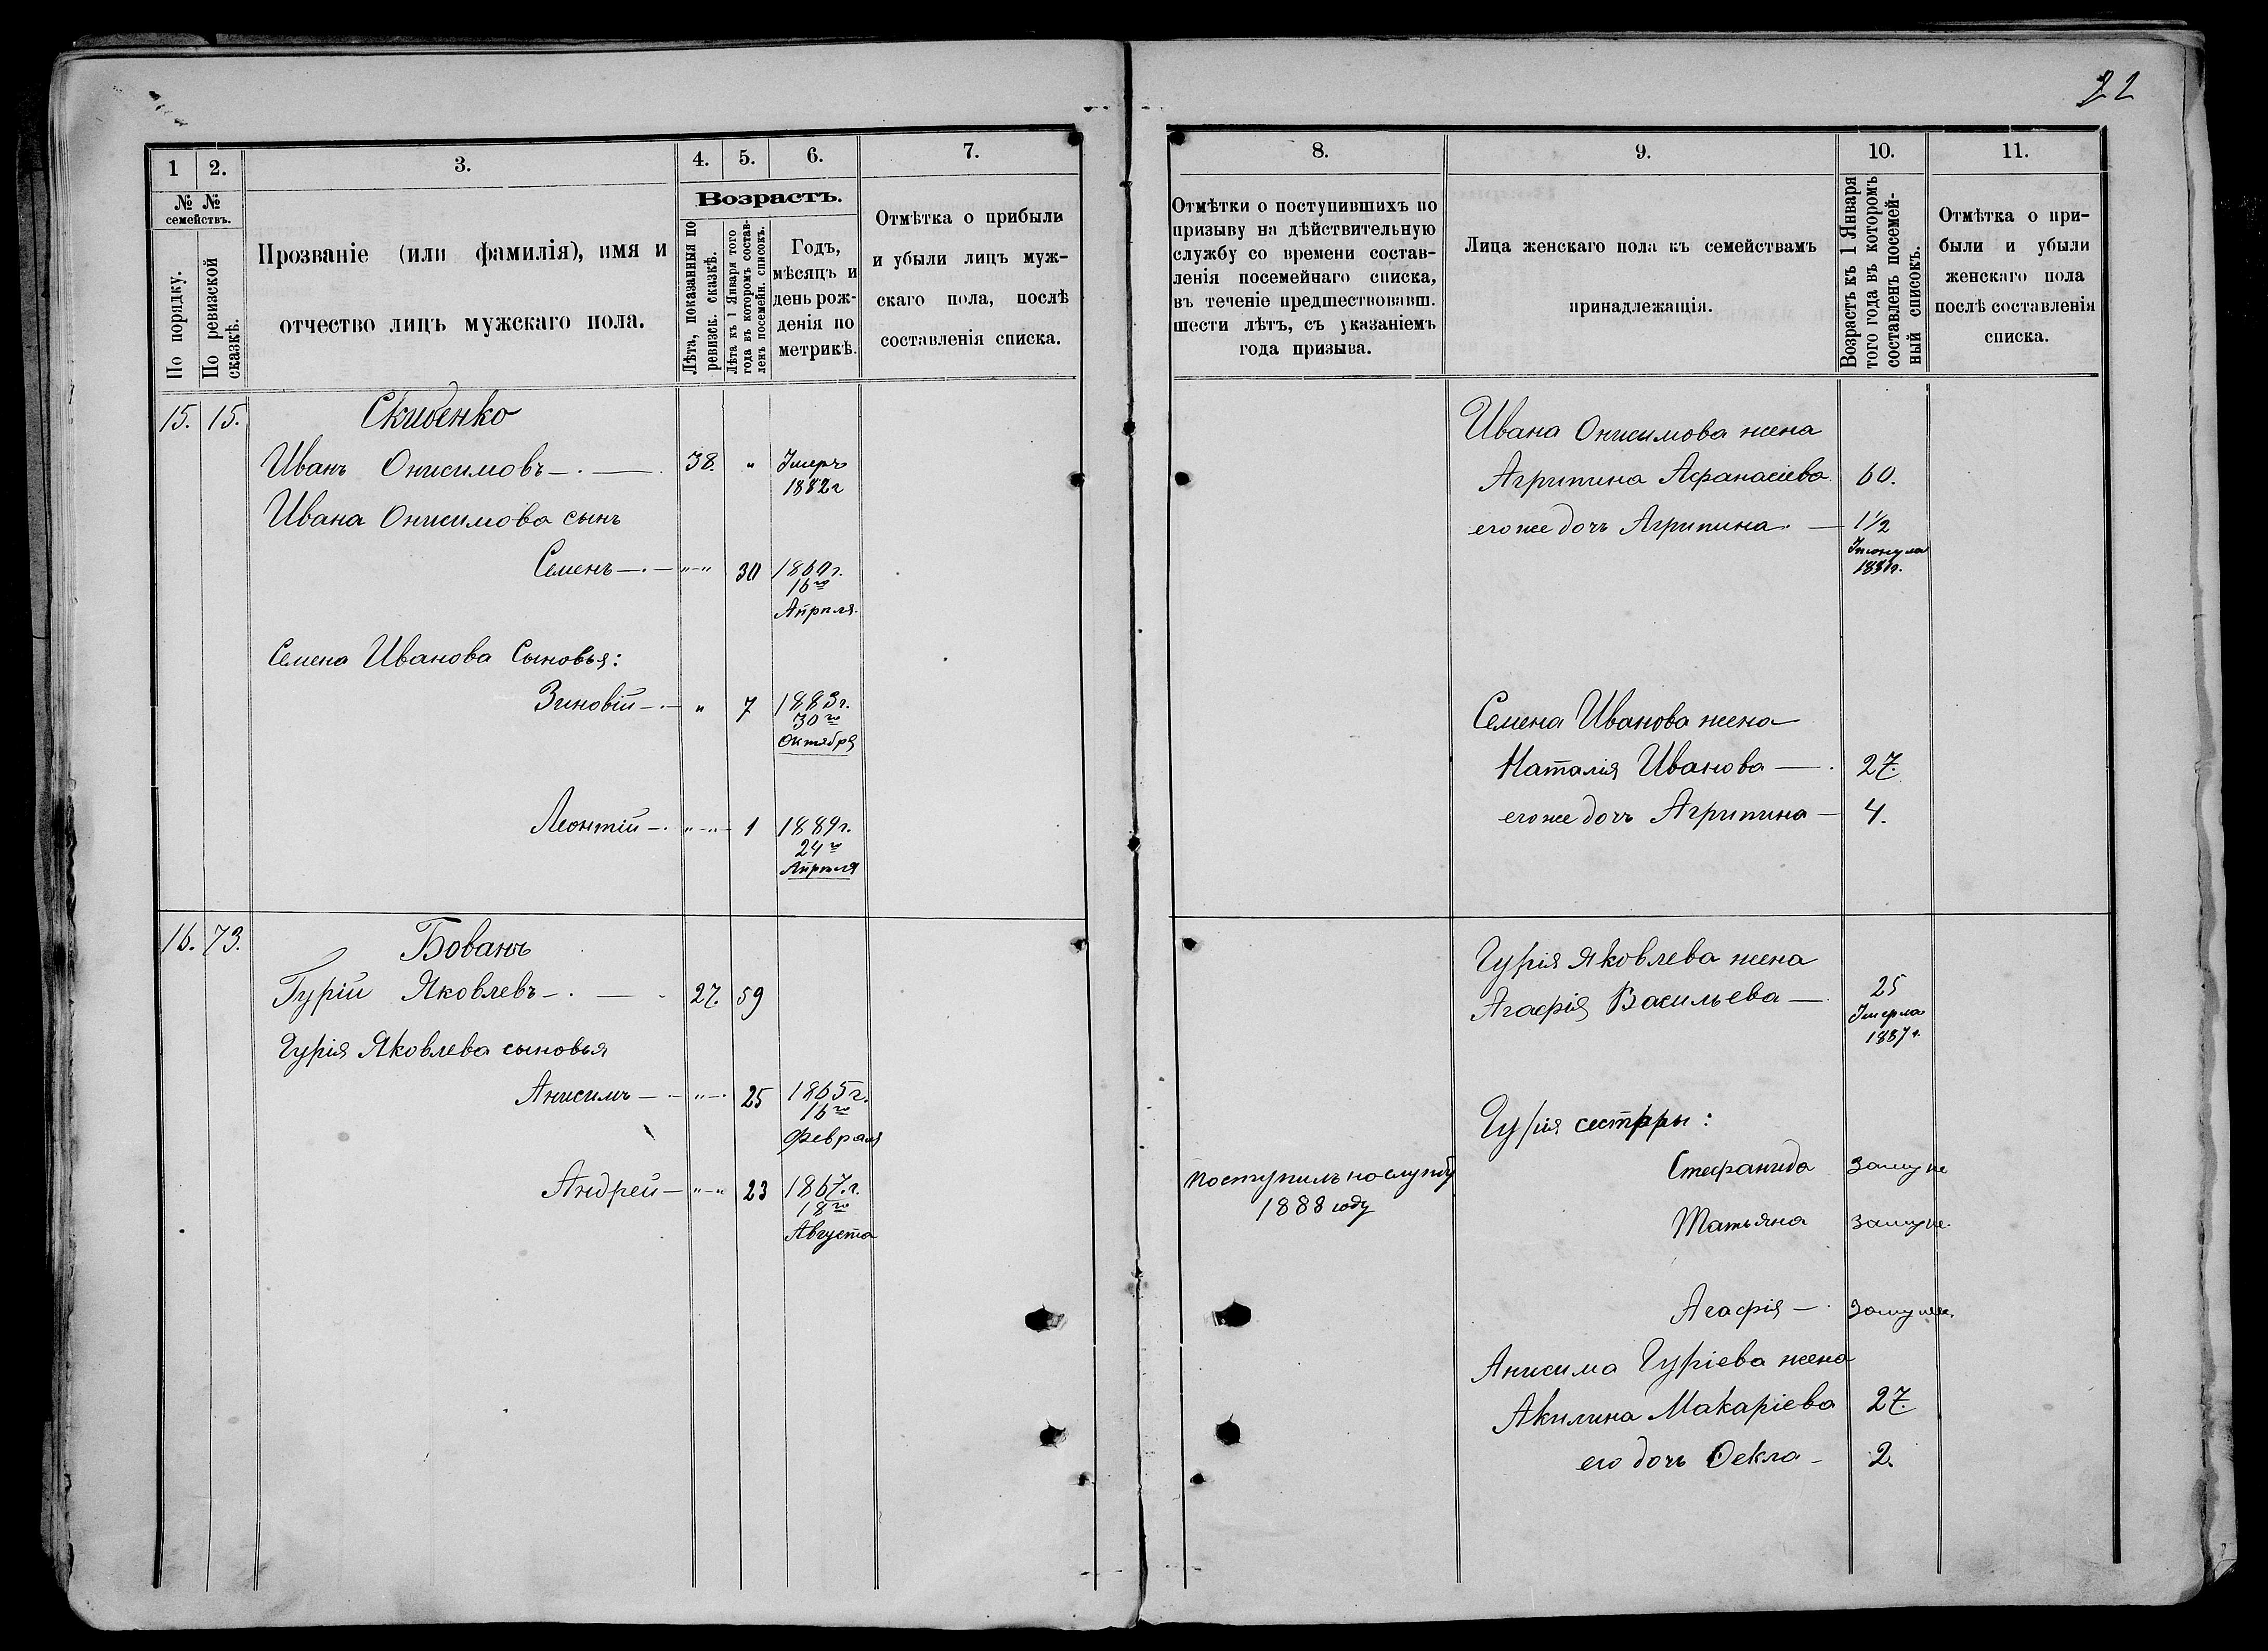 22
1
2.
3.
4.
5.
6.
7.
№ №
семействъ.
По порядку.
По ревизской
сказкѣ.
Прозваніе (или фамилія), имя и
отчество лицъ мужскаго пола.
Возрастъ.
Лѣта, показанныя по
ревизск. сказкѣ.
Лѣта къ 1 Января того
года въ которомъ состав-
ленъ посемейн. списокъ.
Годъ,
мѣсяцъ и
день рож-
денія по
метрикѣ.
Отмѣтка о прибыли
и убыли лицъ муж-
скаго пола, послѣ
составленія списка.
15. 15. Скибенко
Иванъ Онисимовъ 38. " Умеръ
1882 г
Ивана Онисимова сынъ
Семенъ "-" 30 1860 г.
16го
Апрпля.
Семена Иванова Сыновья:
Зиновій " 7 1883 г.
30го
Октября
Леонтій "-" 1 1889 г.
24го
Апрпля
16. 73. Бованъ
Гурій Яковлевъ 27. 59
Гурія Яковлева сыновья
Анисимъ "-" 25 1865 г.
16го
Февраля
Андрей "-" 23 1867. г.
18го
Августа
8.
9.
10.
11.
Отмѣтки о поступившихъ по
призыву на дѣйствительную
службу со времени состав-
ленія посемейнаго списка,
въ теченіе предшествовавш.
шести лѣтъ, съ указаніемъ
года призыва.
Лица женскаго пола къ семействамъ
принадлежащія.
Возрастъ къ 1 Января
того года въ которомъ
составленъ посемей-
ный списокъ.
Отмѣтка о при-
были и убыли
женскаго пола
послѣ составленія
списка.
Ивана Онисимова жена
Агрипина Афанасіева. 60.
его же дочь Агрипина. 1½
1881 г.
Семена Иванова жена
Наталія Иванова 27.
его же дочь Агрипина 4.
Гурія Яковлева жена
Агафія Васильева 25
Умерла
1887 г
Гурія сестрры:
Поступилъ на службу
1888 году
Стефанида замуж
Татьяна замуж.
Агафія замуж.
Анисима Гуріева жена
Акилина Макаріева 27.
его дочь Ѳекла 2.